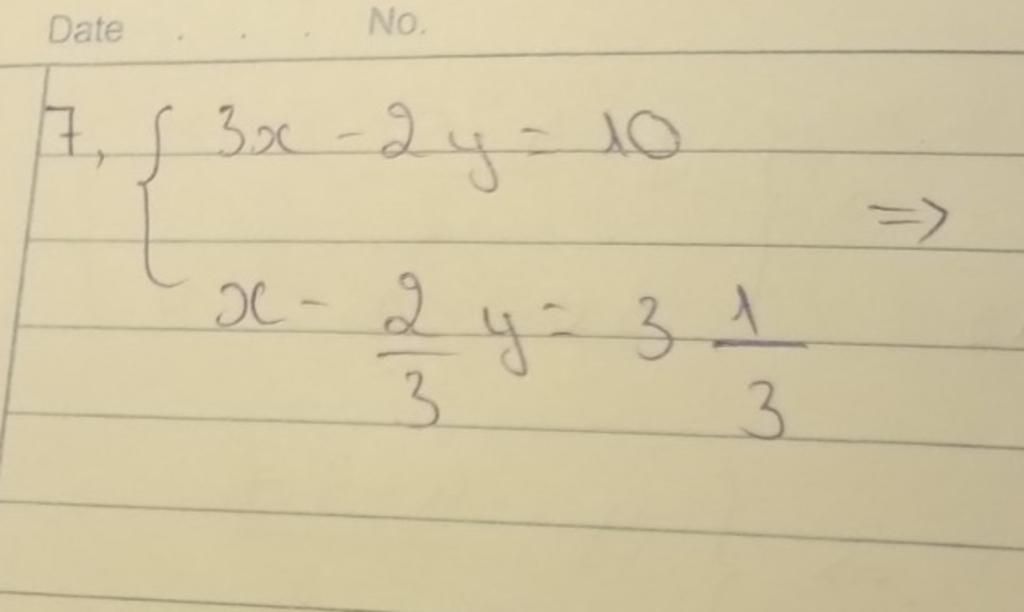 Date . . . No.
7, { 3x - 2y = 10
=>
x - 2/3 y = 3 1/3